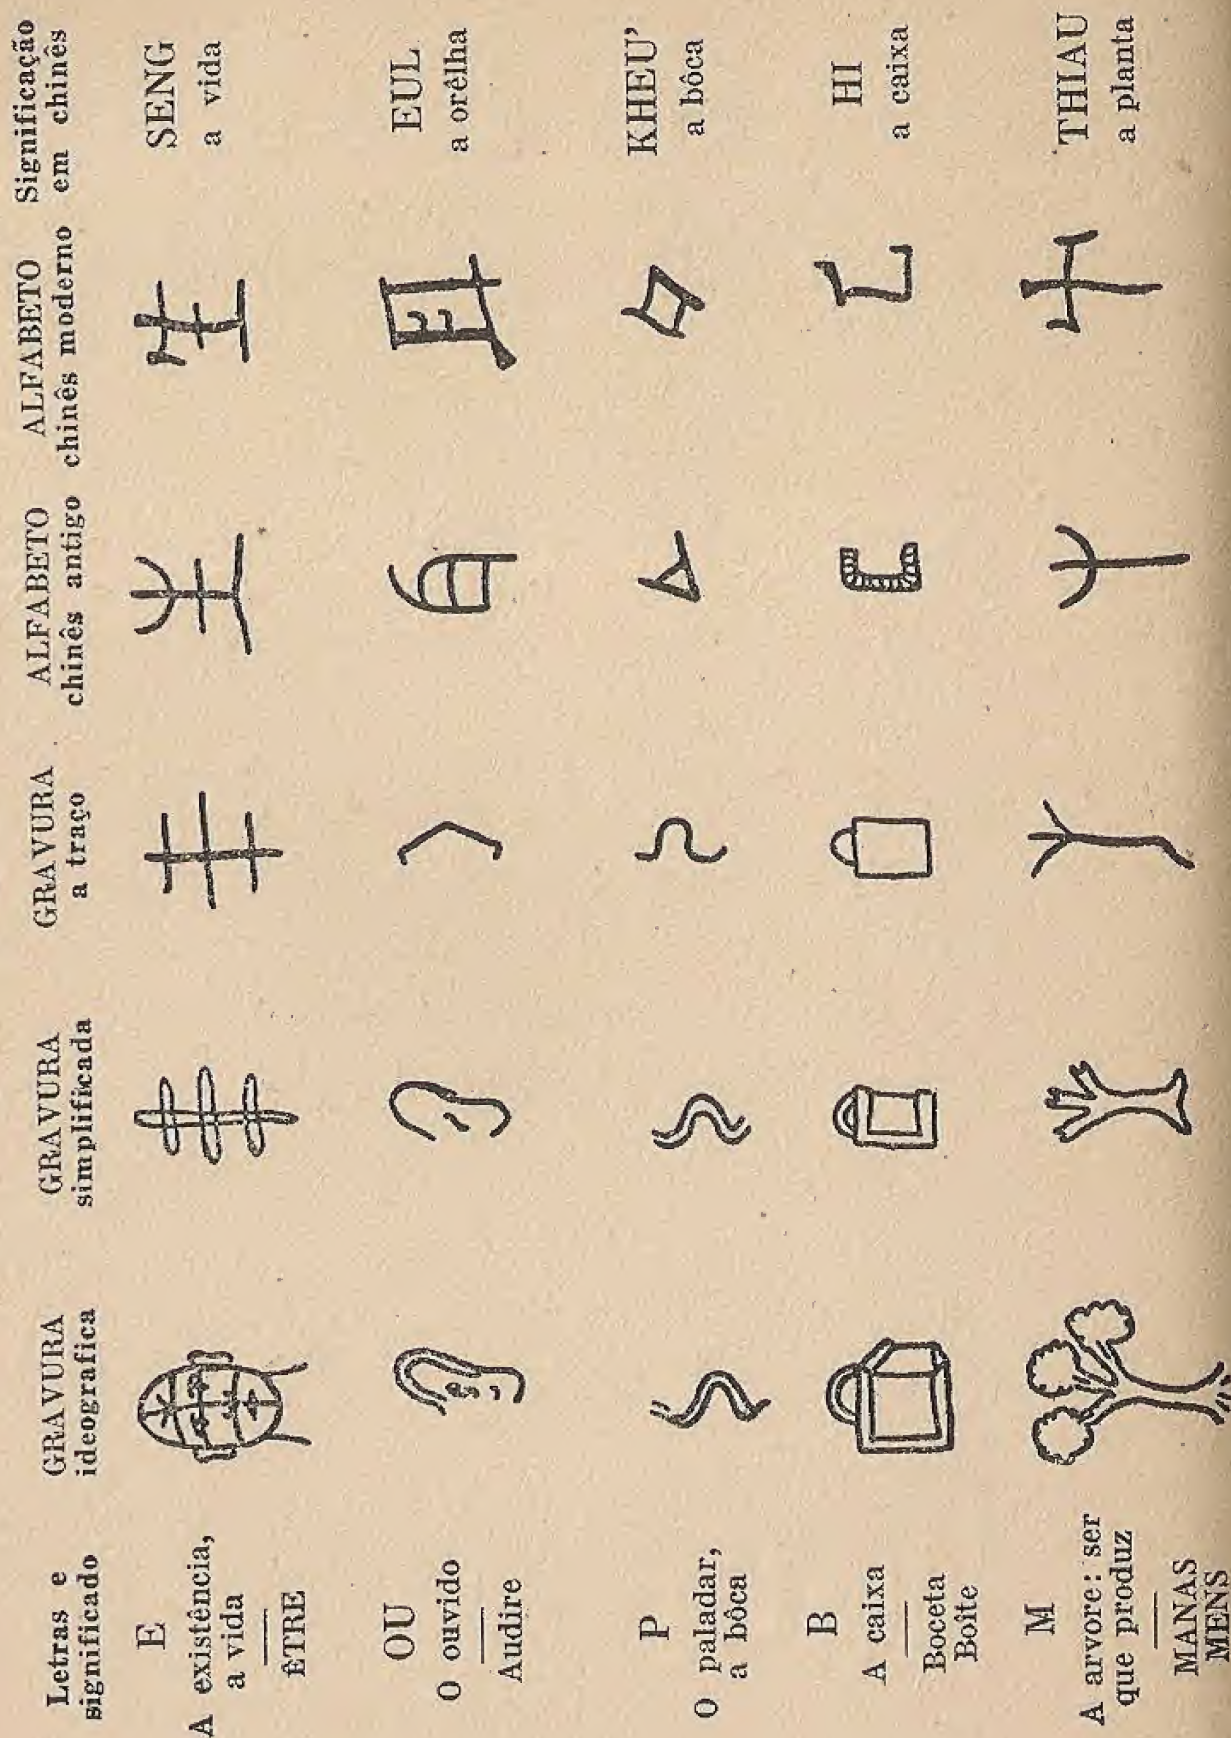 Letras e
significado
GRAVURA
ideografica
GRAVURA
simplificada
GRAVURA
a traço
ALFABETO
chinês antigo
ALFABETO
chinês moderno
Significação
em chinês
E
A existência,
a vida
ÊTRE
SENG
a vida
OU
O ouvido
Audire
EUL
a orêlha
P
O paladar,
a bôca
KHEU’
a bôca
B
A caixa
Boceta
Boîte
HI
a caixa
M
A arvore: ser
que produz
MANAS
MENS
THIAU
a planta